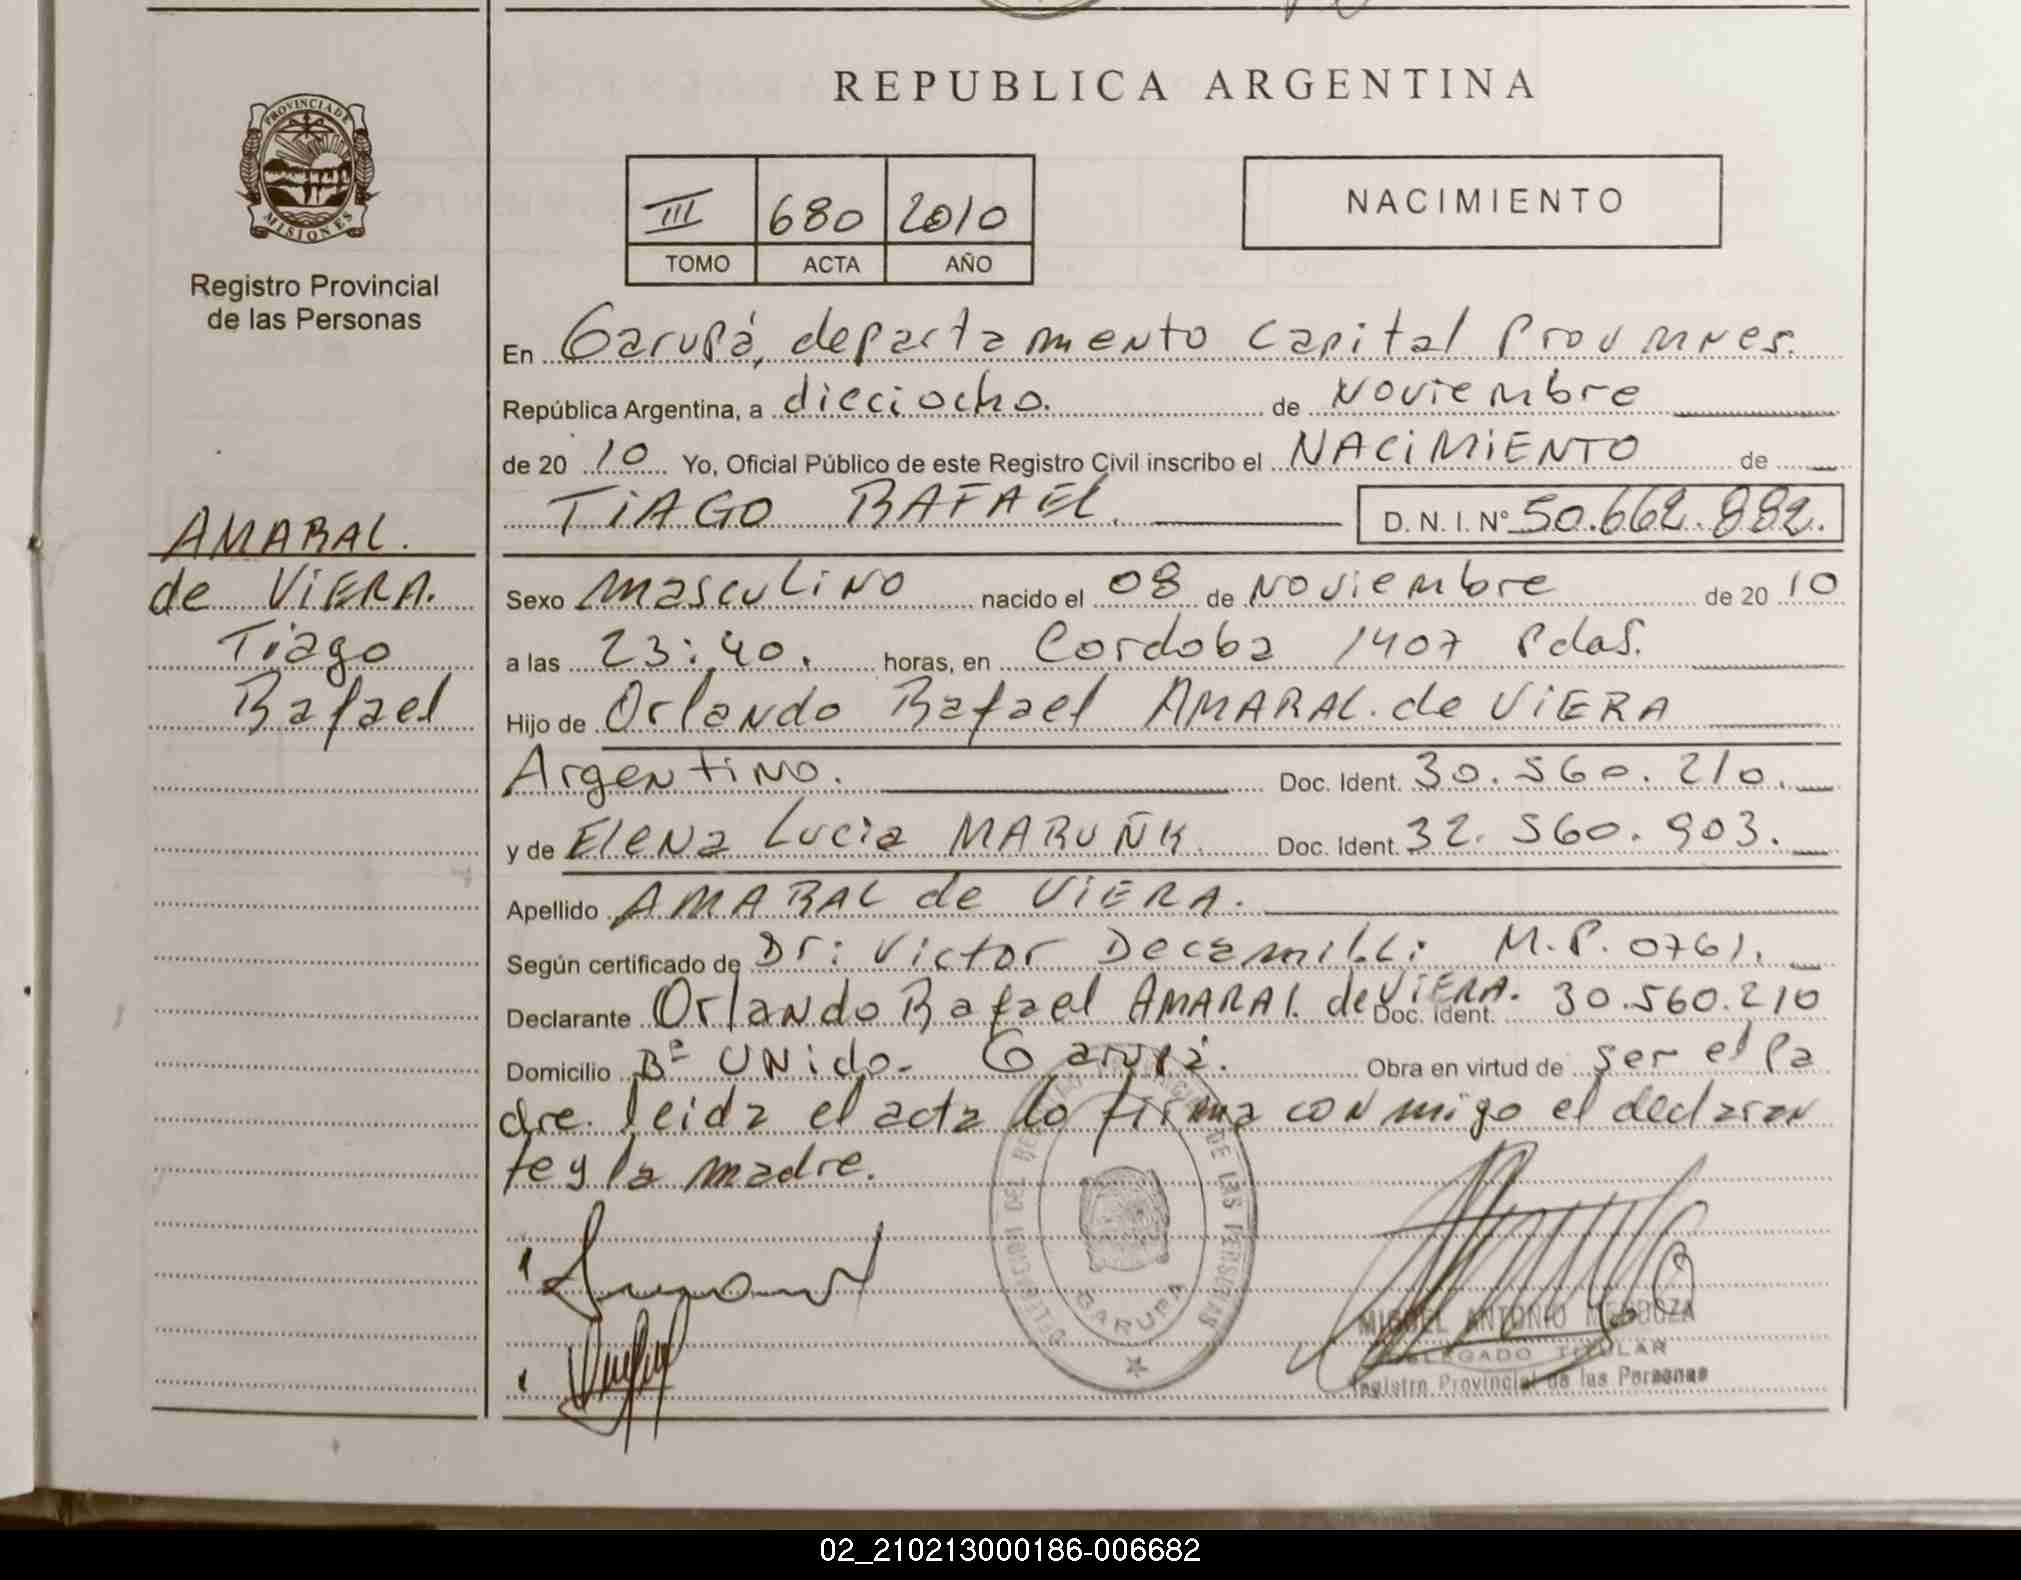 REPUBLICA ARGENTINA
PROVINCIA DE
MISIONES
III 680 2010
TOMO ACTA AÑO
NACIMIENTO
Registro Provincial
de las Personas
En Garupá, departamento Capital Prov Mnes.
República Argentina, a dieciocho. de Noviembre
de 20 10 Yo, Oficial Público de este Registro Civil inscribo el NACIMIENTO de
TIAGO RAFAEL. D. N. I. Nº 50.662.882.
AMARAL.
de VIERA.
Tiago
Rafael
Sexo masculino nacido el 08 de Noviembre de 20 10
a las 23:40. horas, en Cordoba 1407 Pdas.
Hijo de Orlando Rafael AMARAL de VIERA
Argentino. Doc. Ident. 30.560.210.
y de Elena Lucia MARUÑK Doc. Ident. 32.560.903.
Apellido AMARAL de VIERA.
Según certificado de Dr: Victor Decamilli M.P. 0761.
Declarante Orlando Rafael AMARAL de VIERA. Doc. Ident. 30.560.210
Domicilio Bº UNido. Garupá. Obra en virtud de ser el Pa
dre. leida el acta lo firma conmigo el declaran
te y la madre.
GARUPA
MIGUEL ANTONIO MENDOZA
DELEGADO TITULAR
Registro Provincial de las Personas
02_210213000186-006682